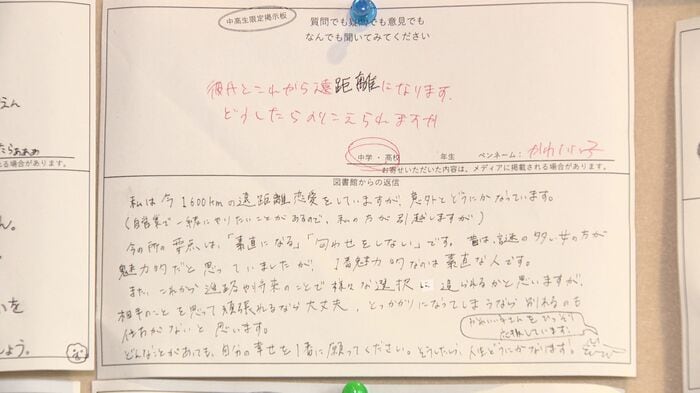 中高生限定掲示板
質問でも疑問でも意見でも
なんでも聞いてみてください
彼氏とこれから遠距離になります.
どうしたらのりこえられますか
中学・高校 年生 ペンネーム: かわいい子
お寄せいただいた内容は、メディアに掲載する場合があります。
図書館からの返信
私は今1600kmの遠距離恋愛をしていますが、意外とどうにかなっています。
(自営業で一緒にやりたいことがあるので、私の方が引越しますが)
今の所の要点は、「素直になる」「匂わせをしない」です。昔は、謎の多い女の方が
魅力的だと思っていましたが、1番魅力的なのは素直な人です。
また、これから進路や将来のことで様々な選択に迫られるかと思いますが、
相手のことを思って頑張れるなら大丈夫、とっかかりになってしまうなら別れるのも
仕方がないと思います。
かわいい子さんをこっそり
応援しています。
どんなことがあっても、自分の幸せを1番に願ってください。そうしたら、人生どうにかなります!
えん
たらぁぁぁ
れる場合があります。
ん。
を
しょう。